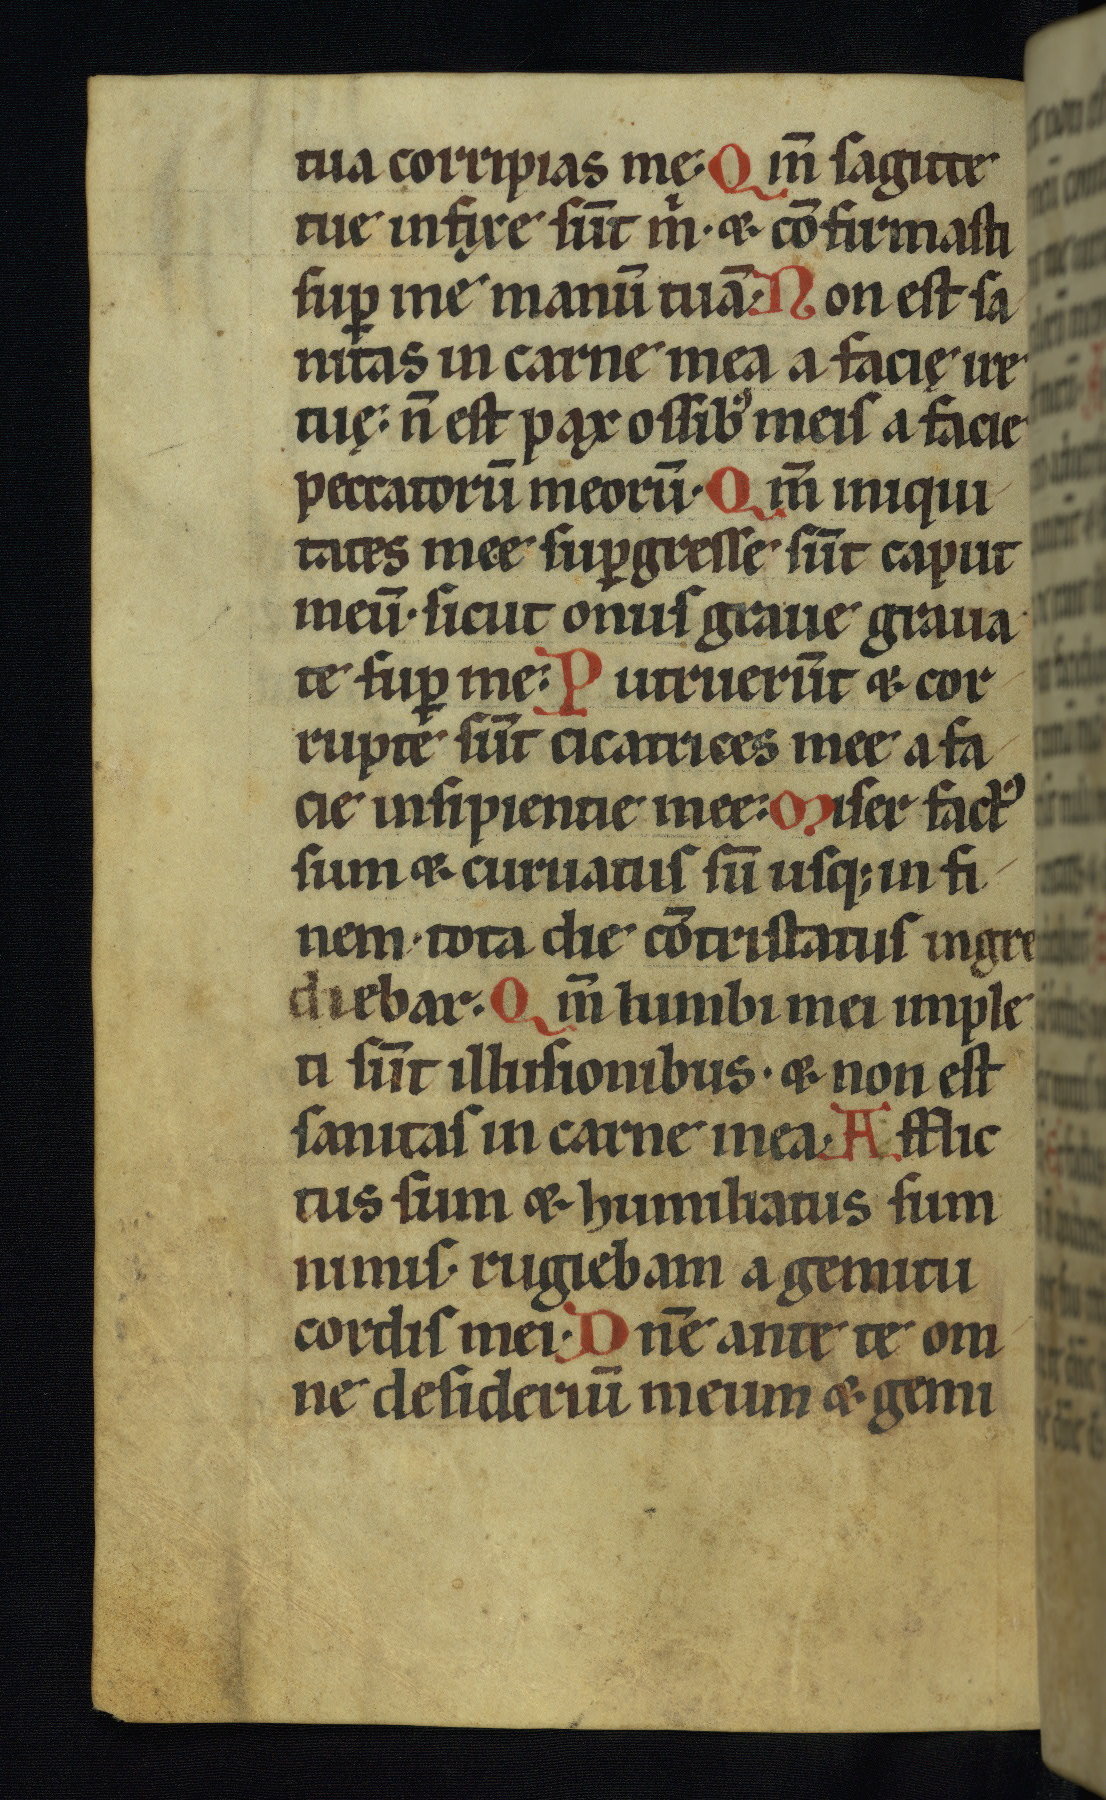 tua corripias me. Qm̄ sagitte
tue infixe sūt m̄. & cōfirmasti
suꝑ me manū tuā. Non est sa
nitas in carne mea a facie ire
tuę: n̄ est pax ossibꝰ meis a facie
peccatorū meorū. Qm̄ iniqui
tates mee suꝑgresse sūt caput
meū. sicut onus graue graua
te suꝑ me: Putruerūt & cor
rupte sūt cicatrices mee a fa
cie insipientie mee: Miser factꝰ
sum & curuatus sū usq; in fi
nem. tota die cōtristatus ingre
diebar. Qm̄ lumbi mei imple
ti sūt illusionibus. & non est
sanitas in carne mea. Afflic
tus sum & humiliatus sum
nimis. rugiebam a gemitu
cordis mei. Dnē ante te om
ne desideriū meum & gemi